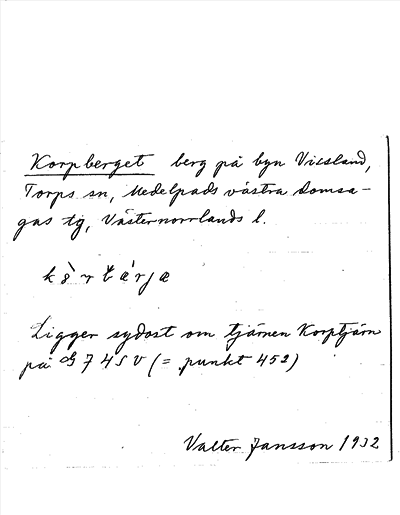 Korpberget berg på byn Viksland,
Torps sn, Medelpads västra domsa-
gas tg, Västernorrlands l.
Ligger sydost om tjärnen Korptjärn
på G 7 4 S V (= punkt 452)
Valter Jansson 1932